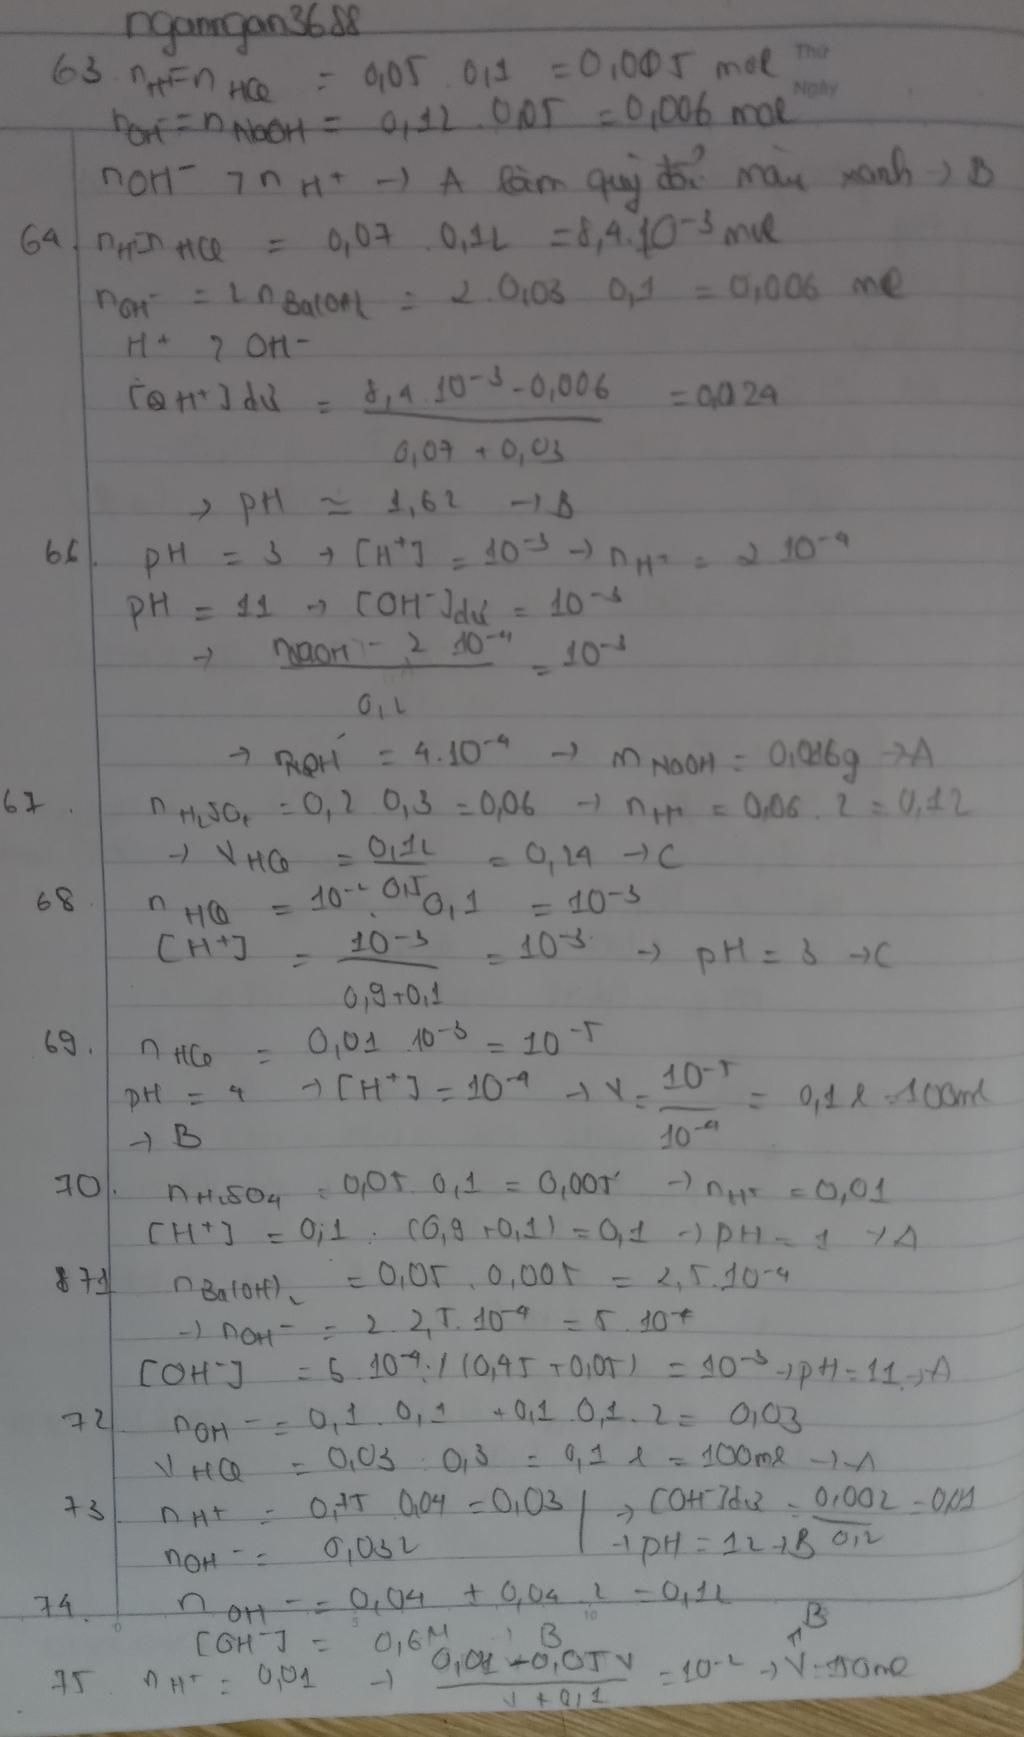 nganngan3688
Thứ
Ngày
63. nH+=nHCl = 0,05 . 0,1 = 0,005 mol
nOH- = nNaOH = 0,12 . 0,05 = 0,006 mol
nOH- > nH+ → A làm quỳ đổi màu xanh → B
64. nH+=nHCl = 0,07 . 0,12 = 8,4.10^-3 mol
nOH- = 2nBa(OH)2 = 2 . 0,03 0,1 = 0,006 mol
H+ > OH-
[H+] dư = (8,4.10^-3 - 0,006) / (0,07 + 0,03) = 0,024
→ pH ≃ 1,62 → B
66. pH = 3 → [H+] = 10^-3 → nH+ = 2 10^-4
pH = 11 → [OH-]dư = 10^-3
→ (nNaOH - 2 10^-4) / 0,2 = 10^-3
→ nOH- = 4.10^-4 → mNaOH = 0,016g → A
67. nH2SO4 = 0,2 0,3 = 0,06 → nH+ = 0,06 . 2 = 0,12
→ VHCl = 0,12 / 0,5 = 0,24 → C
68. nHCl = 10^-2 . 0,1 = 10^-3
[H+] = 10^-3 / (0,9+0,1) = 10^-3 → pH = 3 → C
69. nHCl = 0,01 10^-3 = 10^-5
pH = 4 → [H+] = 10^-4 → V = 10^-5 / 10^-4 = 0,1 l = 100ml
→ B
70. nH2SO4 = 0,05 0,1 = 0,005 → nH+ = 0,01
[H+] = 0,1 : (0,9+0,1) = 0,1 → pH = 1 → A
71 nBa(OH)2 = 0,05 . 0,005 = 2,5.10^-4
→ nOH- = 2 . 2,5.10^-4 = 5.10^-4
[OH-] = 5 10^-4 / (0,45 + 0,05) = 10^-3 → pH = 11 → A
72 nOH- = 0,1 . 0,1 + 0,1 0,1 . 2 = 0,03
VHCl = 0,03 : 0,3 = 0,1 l = 100ml → A
73 nH+ = 0,75 0,04 = 0,03 | → [OH-]dư = 0,002 / 0,2 = 0,01
nOH- = 0,032 | → pH = 12 → B
74. nOH- = 0,04 + 0,04 2 = 0,12
[OH-] = 0,6M → B
75 nH+ = 0,01 → (0,01 + 0,05V) / (V + 0,1) = 10^-2 → V = ml → B